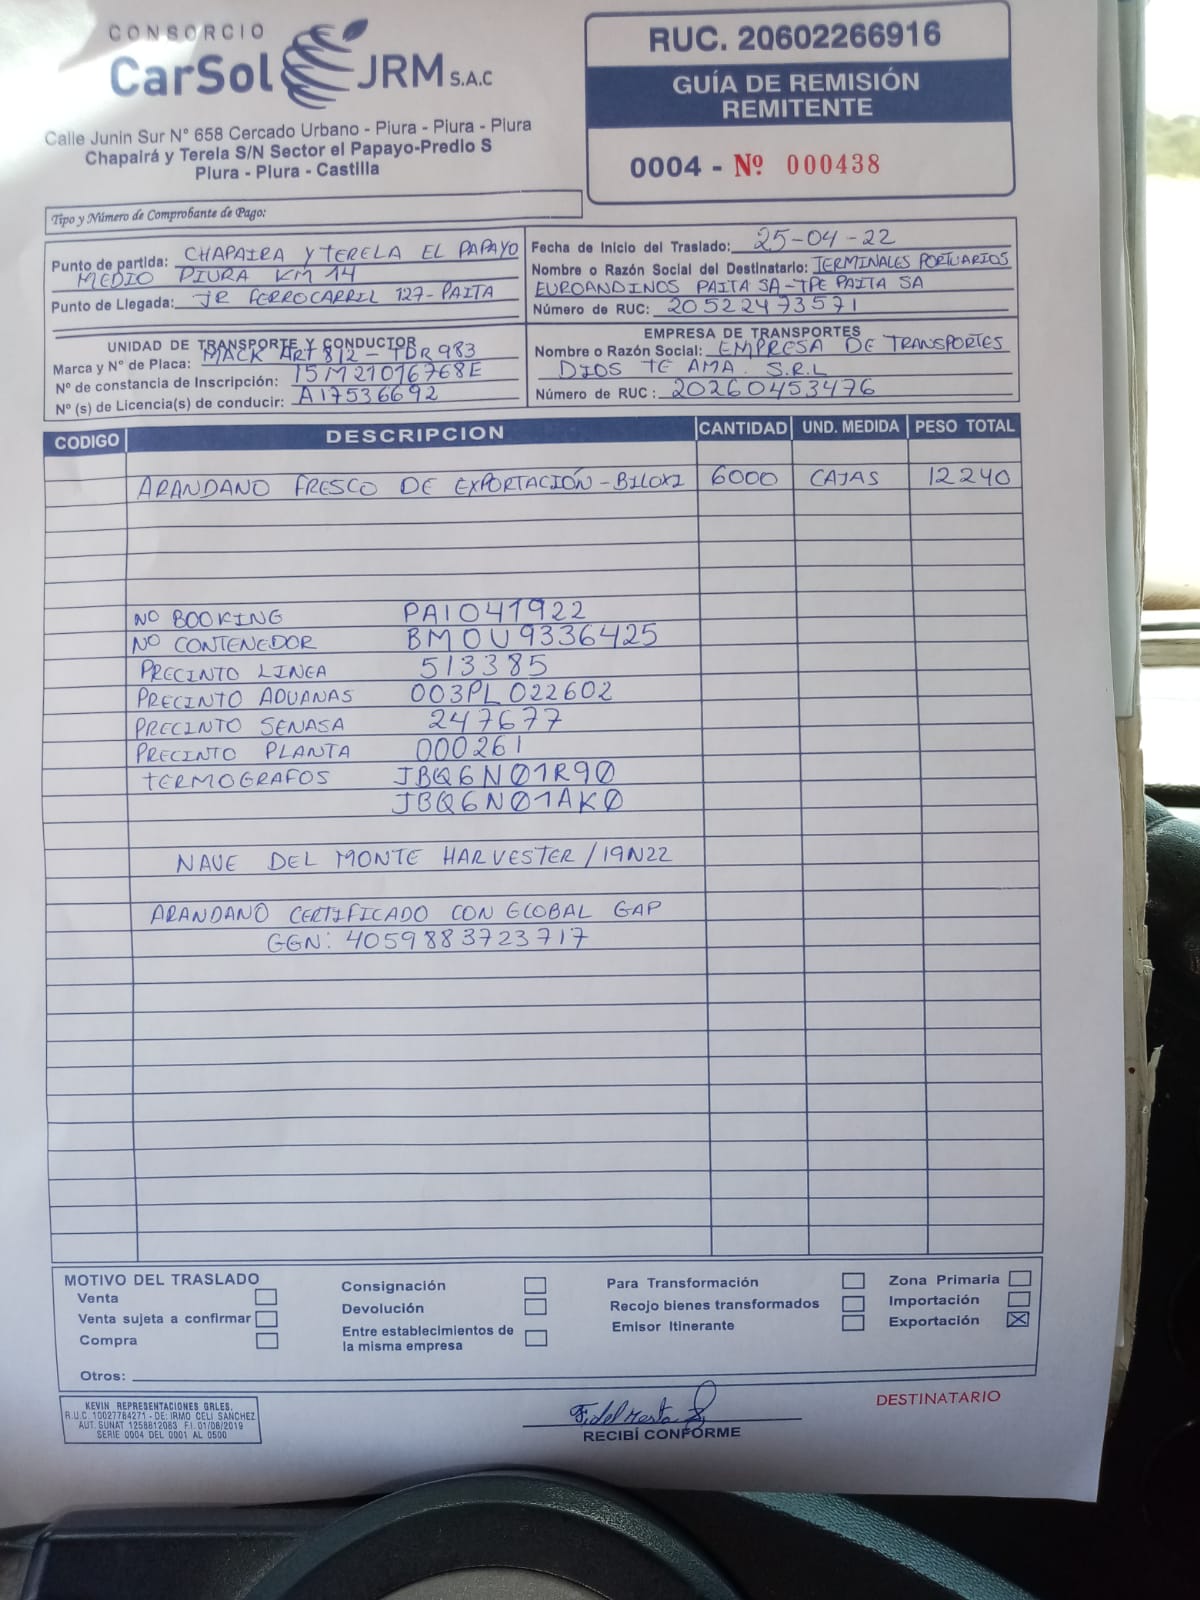 CONSORCIO
CarSol JRM S.A.C
Calle Junin Sur N° 658 Cercado Urbano - Piura - Piura - Piura
Chapairá y Terela S/N Sector el Papayo-Predio S
Piura - Piura - Castilla
RUC. 20602266916
GUÍA DE REMISIÓN
REMITENTE
0004 - Nº 000438
Tipo y Número de Comprobante de Pago:
Punto de partida: CHAPAIRA Y TERELA EL PAPAYO
MEDIO PIURA KM 14
Punto de Llegada: JR FERROCARRIL 127-PAITA
Fecha de Inicio del Traslado: 25-04-22
Nombre o Razón Social del Destinatario: TERMINALES PORTUARIOS
EUROANDINOS PAITA SA-TPE PAITA SA
Número de RUC: 20522473571
UNIDAD DE TRANSPORTE Y CONDUCTOR
Marca y N° de Placa: MACK ART 812 - TDR 983
N° de constancia de Inscripción: 15M21016768E
N° (s) de Licencia(s) de conducir: A17536692
EMPRESA DE TRANSPORTES
Nombre o Razón Social: EMPRESA DE TRANSPORTES
DIOS TE AMA. S.R.L
Número de RUC: 20260453476
CODIGO DESCRIPCION CANTIDAD UND. MEDIDA PESO TOTAL
ARANDANO FRESCO DE EXPORTACIÓN - BILOXI 6000 CAJAS 12240
NO BOOKING PAI041922
NO CONTENEDOR BMOU9336425
PRECINTO LINEA 513385
PRECINTO ADUANAS 003PL022602
PRECINTO SENASA 247677
PRECINTO PLANTA 000261
TERMOGRAFOS JBQ6N01R90
JBQ6N01AK0
NAVE DEL MONTE HARVESTER / 19N22
ARANDANO CERTIFICADO CON GLOBAL GAP
GGN: 4059883723717
MOTIVO DEL TRASLADO
Venta
Venta sujeta a confirmar
Compra
Consignación
Devolución
Entre establecimientos de
la misma empresa
Para Transformación
Recojo bienes transformados
Emisor Itinerante
Zona Primaria
Importación
Exportación X
Otros:
KEVIN REPRESENTACIONES GRLES.
R.U.C. 10027784271 - DE: IRMO CELI SANCHEZ
AUT. SUNAT 1258812083 F.I. 01/08/2019
SERIE 0004 DEL 0001 AL 0500
RECIBÍ CONFORME
DESTINATARIO